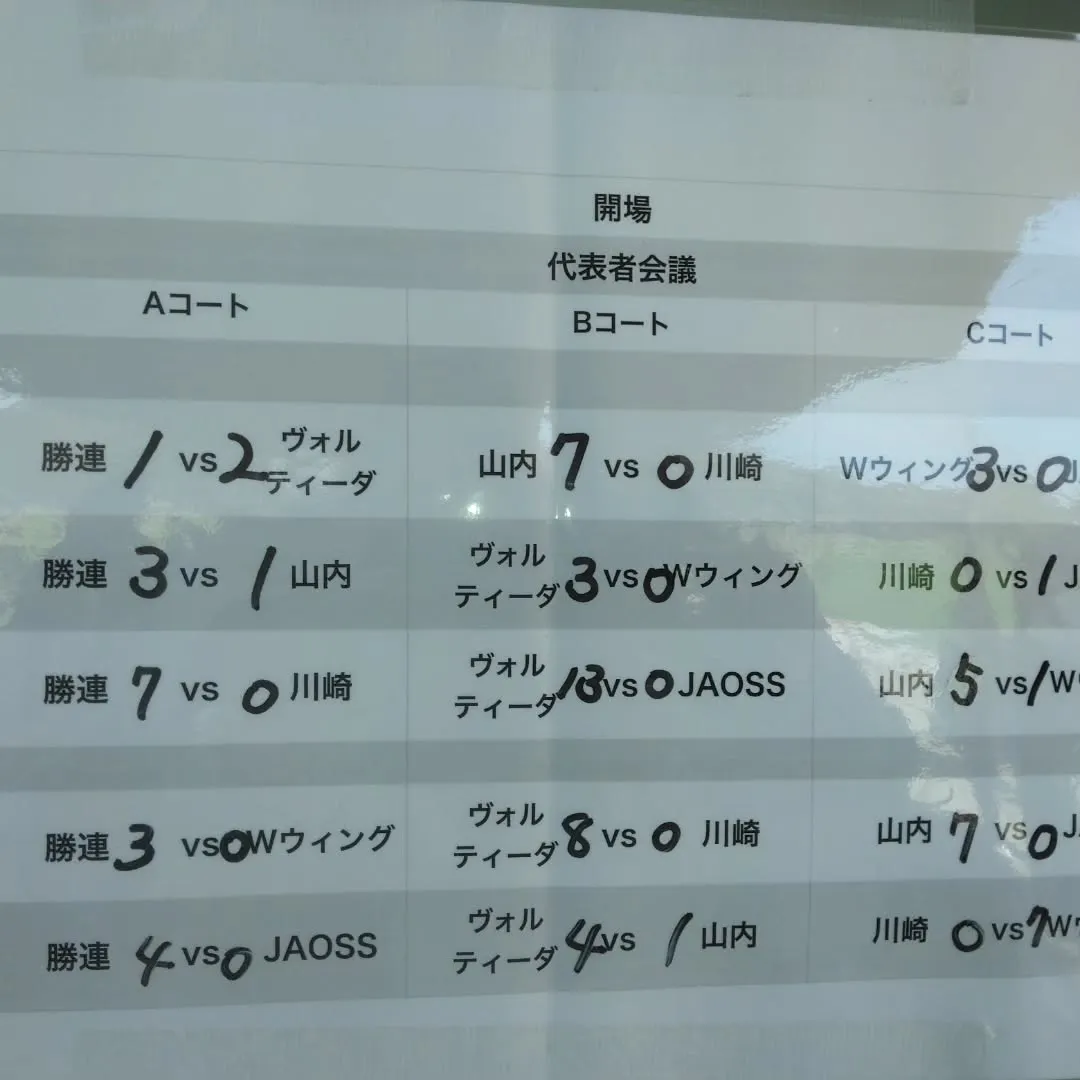 開場
代表者会議
Aコート Bコート Cコート
勝連 1 vs 2 ヴォルティーダ 山内 7 vs 0 川崎 Wウィング 3 vs 0 J
勝連 3 vs 1 山内 ヴォルティーダ 3 vs 0 Wウィング 川崎 0 vs 1 J
勝連 7 vs 0 川崎 ヴォルティーダ 13 vs 0 JAOSS 山内 5 vs 1 W
勝連 3 vs 0 Wウィング ヴォルティーダ 8 vs 0 川崎 山内 7 vs 0 J
勝連 4 vs 0 JAOSS ヴォルティーダ 4 vs 1 山内 川崎 0 vs 7 W